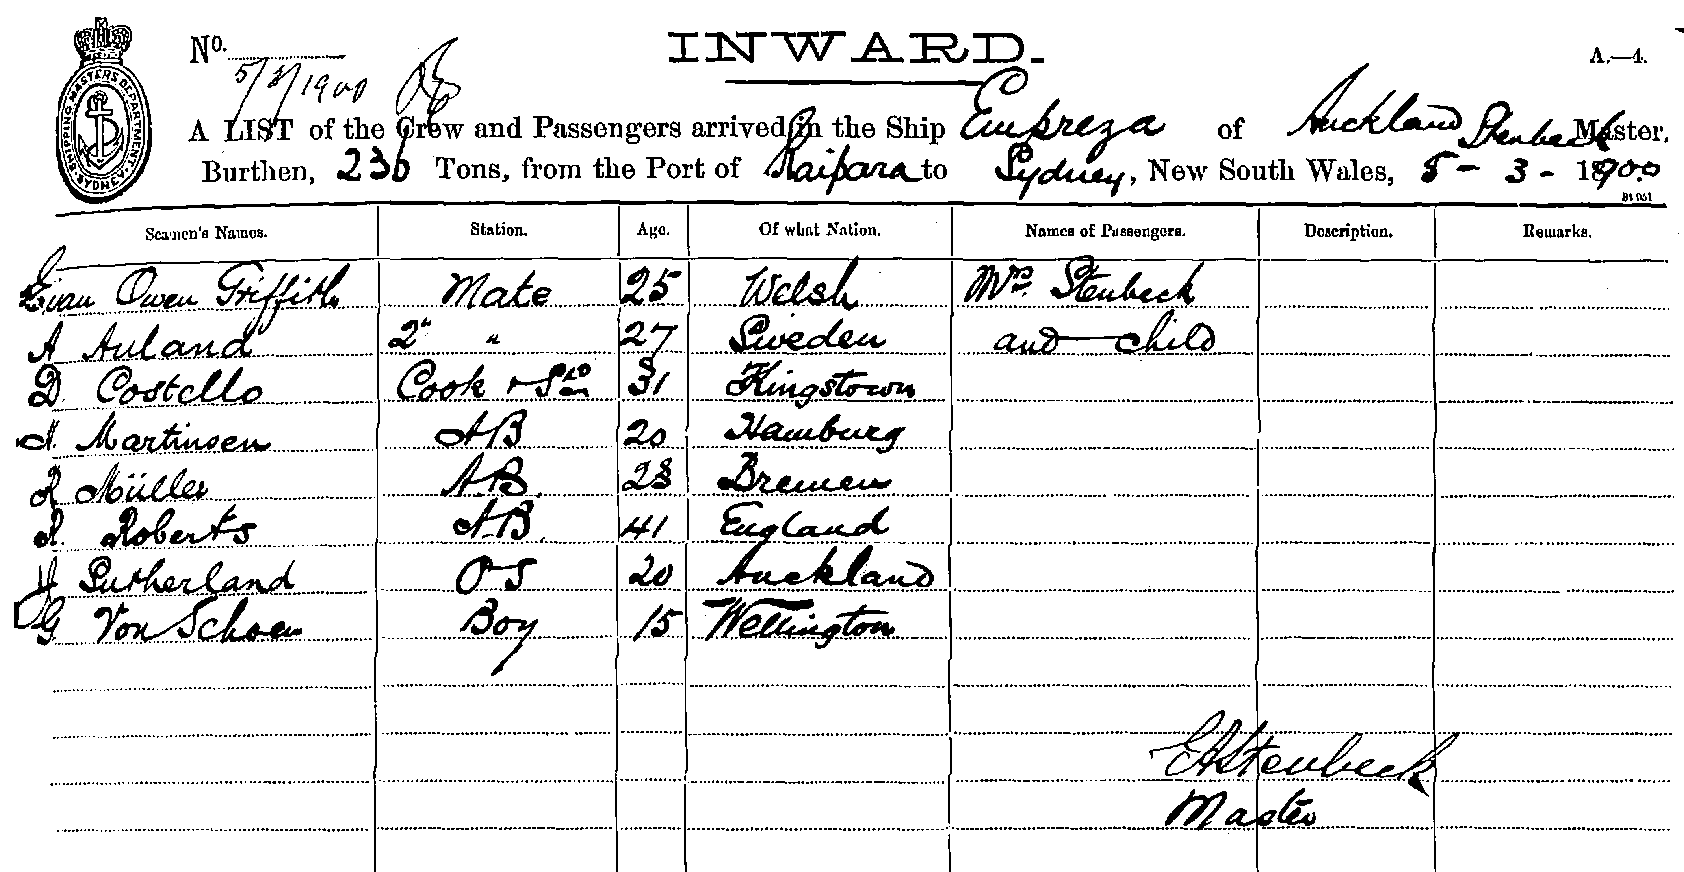 No.
INWARD.
A.—4.
5/3/1900
A LIST of the Crew and Passengers arrived in the Ship Empreza of Auckland Stenbeck Master,
Burthen, 236 Tons, from the Port of Kaipara to Sydney, New South Wales, 5 - 3 - 1900
SHIPPING MASTERS DEPARTMENT SYDNEY
Seamen's Names. Station. Age. Of what Nation. Names of Passengers. Description. Remarks.
Evan Owen Griffith Mate 25 Welsh Mrs. Stenbeck
A Auland 2" " 27 Sweden and child
D. Costello Cook + Std 31 Kingstown
N. Martinsen AB 20 Hamburg
R Müller A.B. 28 Bremen
R. Roberts A.B. 41 England
J Sutherland O S 20 Auckland
G Von Schoen Boy 15 Wellington
EAStenbeck
Master